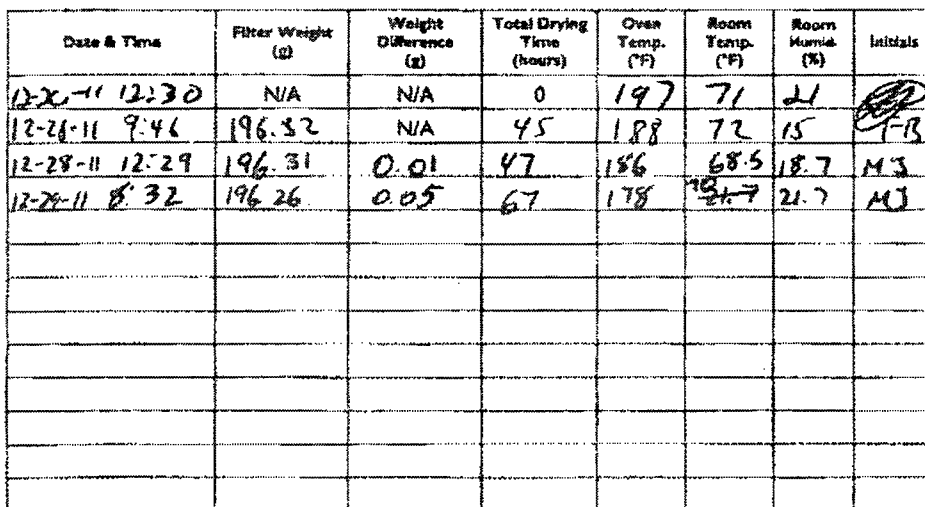 Date & Time Filter Weight (g) Weight Difference (g) Total Drying Time (hours) Oven Temp. (°F) Room Temp. (°F) Room Humid. (%) Initials
12:30 N/A N/A 0 197 71 21
12-28-11 9:46 196.32 N/A 45 188 72 15
12-28-11 12:29 196.31 0.01 47 186 68.5 18.7 MJ
12-29-11 8:32 196.26 0.05 67 178 70 21.7 MJ